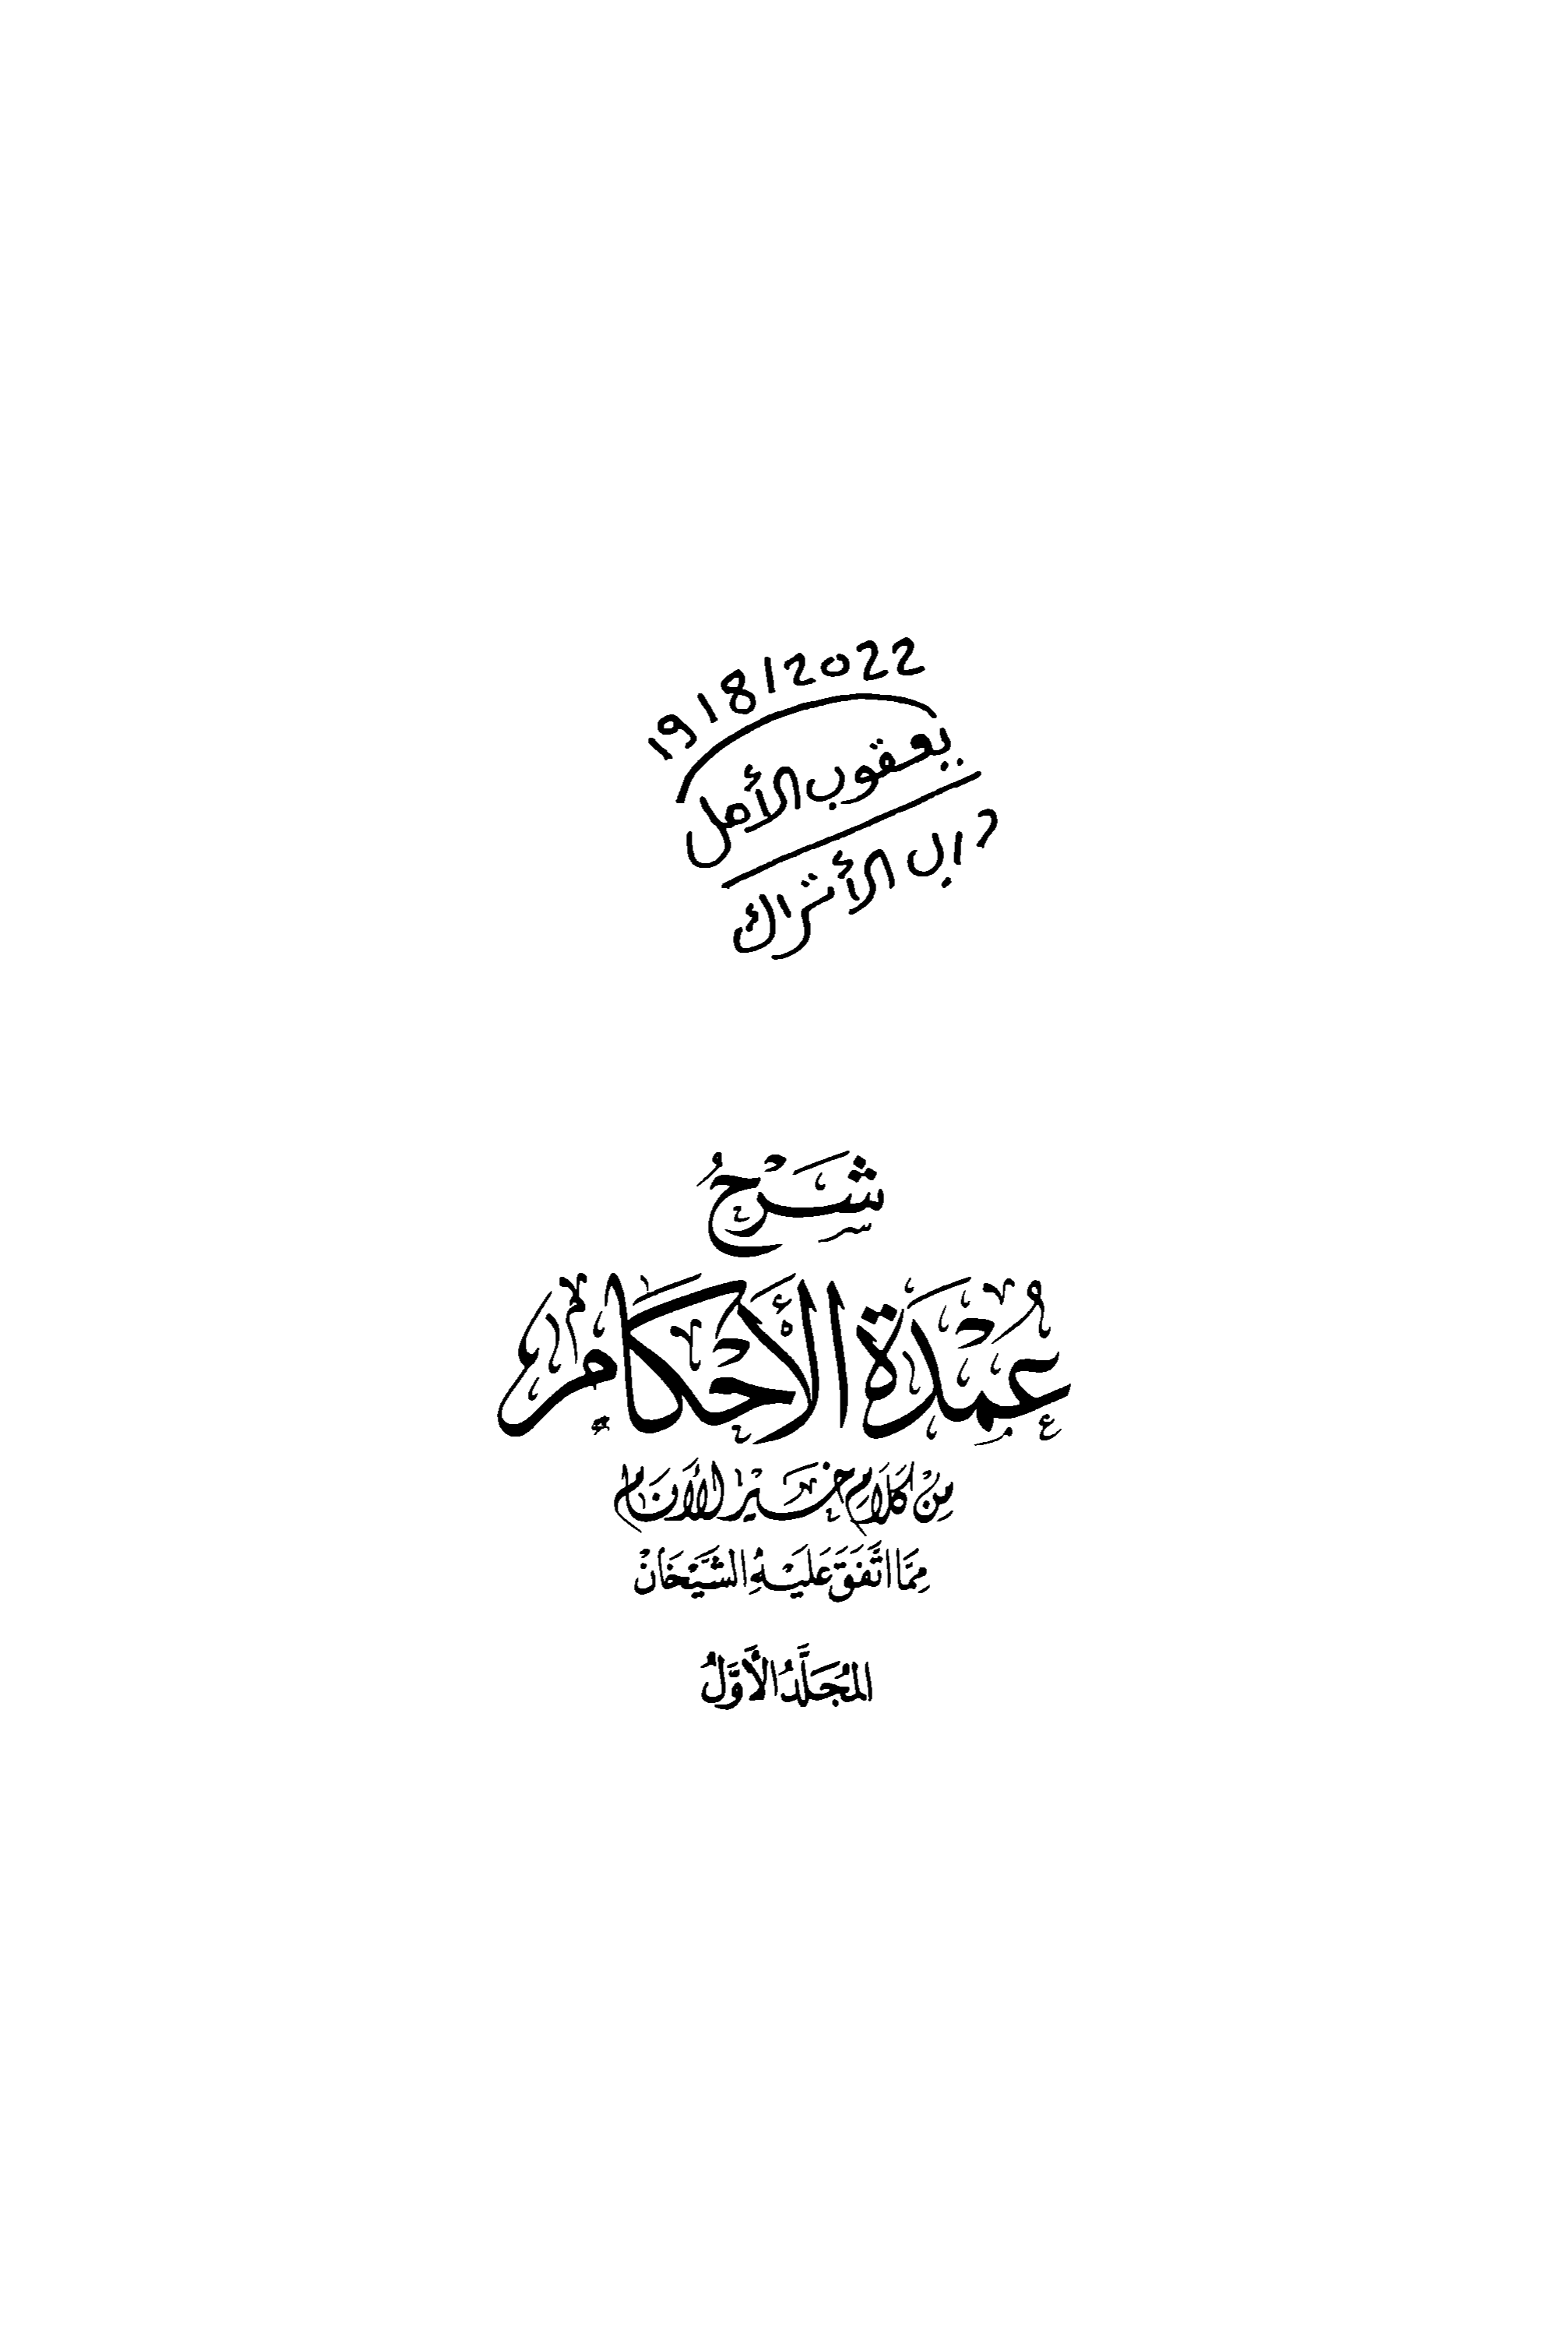 19/8/2022
يعقوب الأمل
دال الأتراك
شَرْحُ
عُمْدَةُ الأَحْكَامِ
مِنْ كَلَامِ خَيْرِ الأَنَام
مِمَّا اتَّفَقَ عَلَيْهِ الشَّيْخَانْ
المُجَلَّدُ الأَوَّلُ